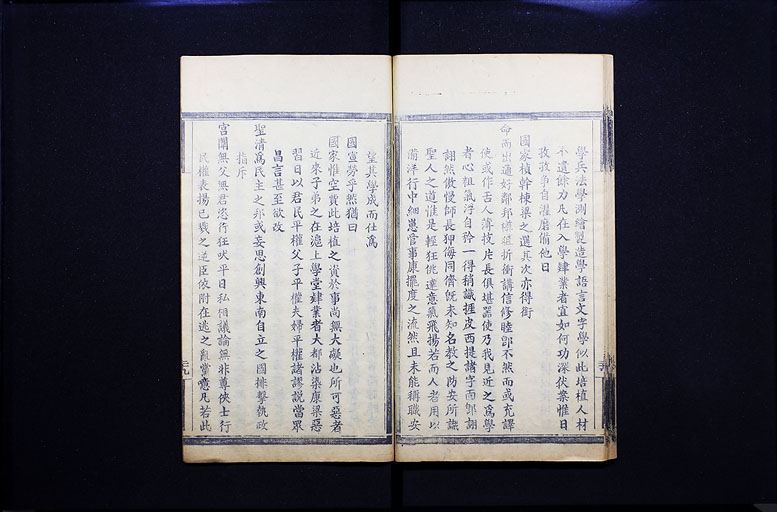 學兵法學測繪製造學語言文字學似此培植人材
不遺餘力凡在入學肄業者宜如何功深伏案惟日
孜孜事自濯磨備他日
國家楨幹棟梁之選其次亦得銜
命而出通好鄰邦罇俎折衝講信修睦即不然而或充譯
使或作古人薄技片長俱堪器使乃我見近之為學
者心粗氣浮自矜一得稍識挪皮西提諸字而即詡
詡然傲慢師長狎侮同儕旣未知名教之防安所識
聖人之道惟是輕狂佻達意氣飛揚若而人者用以
備洋行中細崽當事康擺度之流然且未能稱職安
望其學成而仕為
國宣勞乎然猶曰
國家惟空費此培植之資於事尚無大礙也所可惡者
近來子弟之在滬上學堂肄業者大都沾染康梁惡
習日以君民平權父子平權夫婦平權諸謬說當眾
昌言甚至欲改
聖清為民主之邦或妄思創興東南自立之國排擊執政
指斥
宮闈無父無君恣行狂吠平日私相議論無非尊俠士行
民權表揚已戮之逆臣依附在逃之亂黨意凡若此
二九